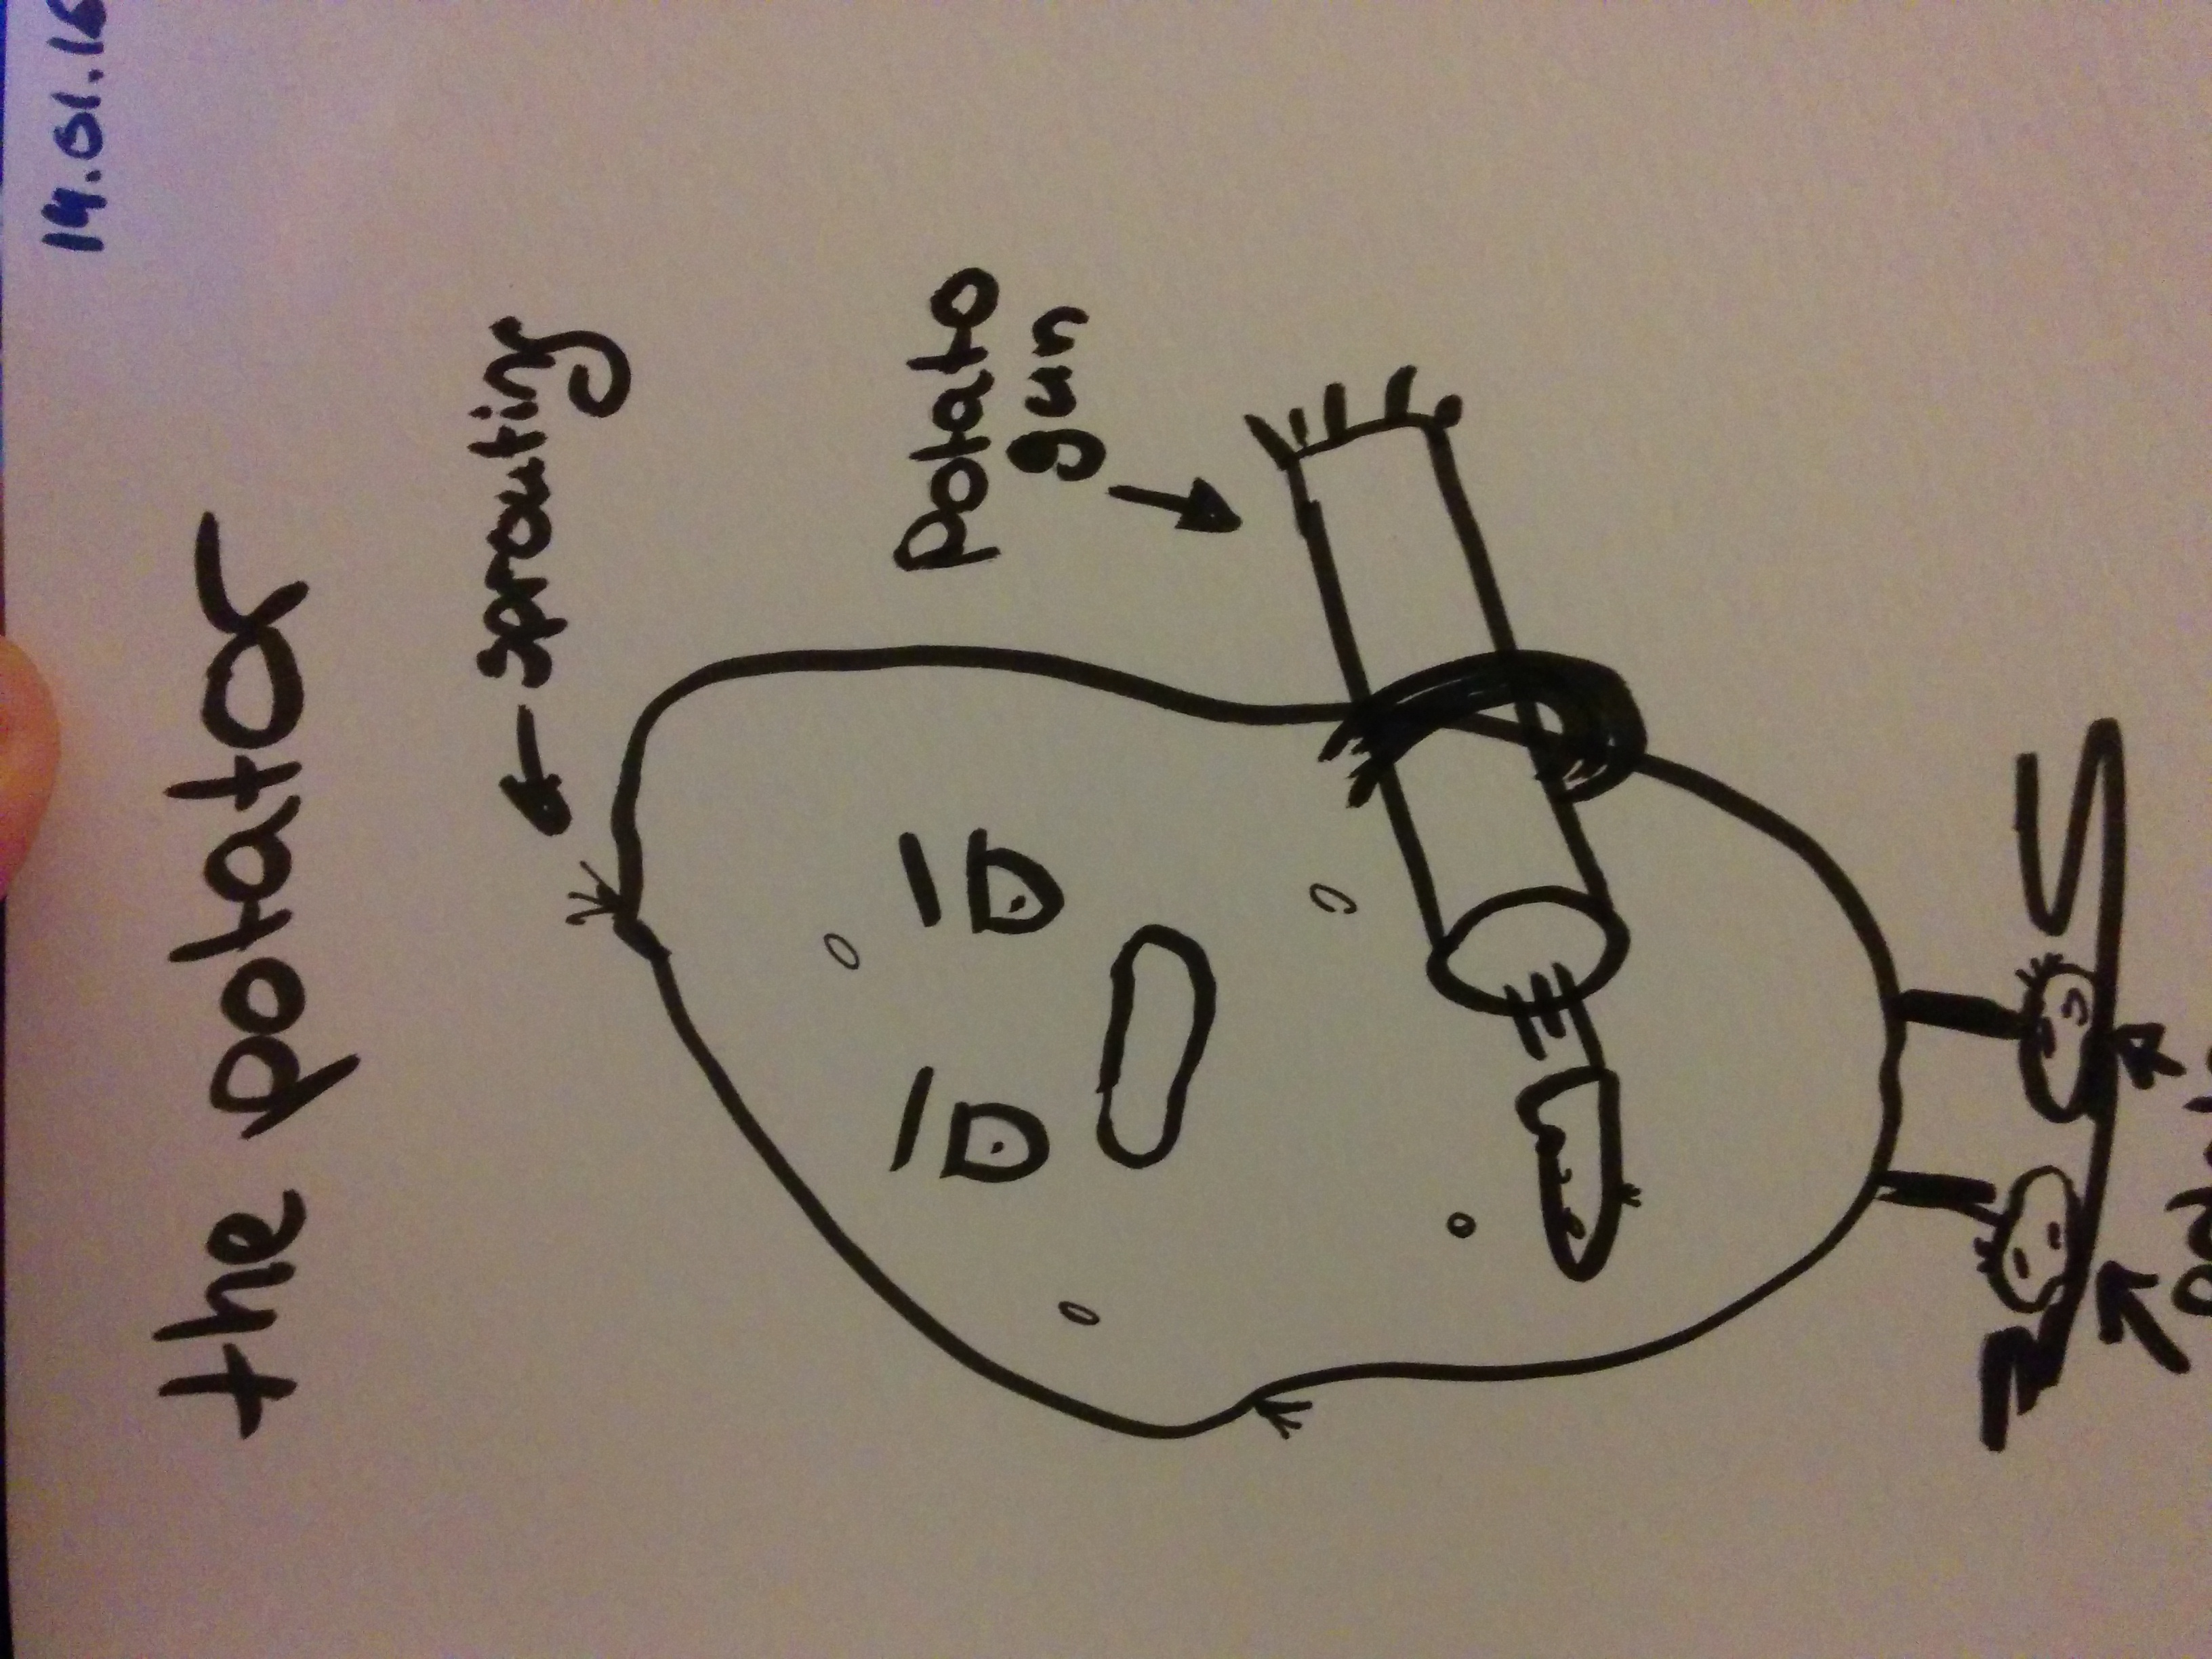 the potator
← sprouting
potato
gun